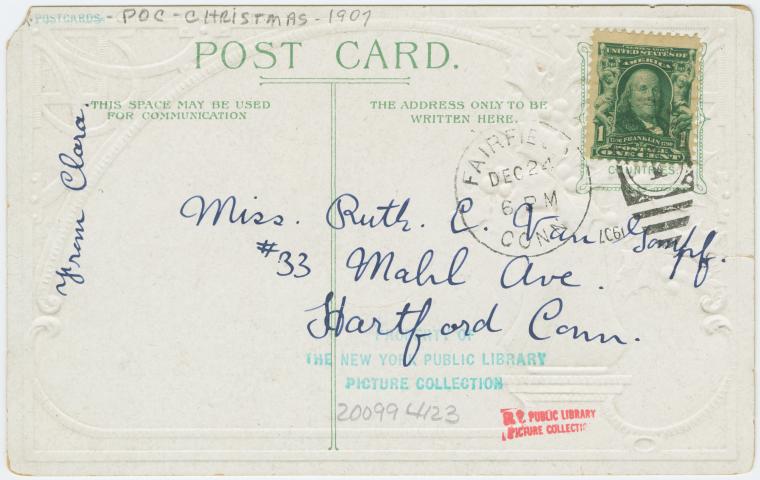 POSTCARDS - POC - CHRISTMAS - 1907
POST CARD.
THIS SPACE MAY BE USED
FOR COMMUNICATION
THE ADDRESS ONLY TO BE
WRITTEN HERE.
SERIES 1902
UNITED STATES OF
AMERICA
1 FRANKLIN 1
POSTAGE
ONE CENT
COUNTRIES
FAIRFIELD
DEC 24
6 PM
CONN
1907
From Clara.
Miss. Ruth. C. Van Gompf.
#33 Mahl Ave.
Hartford Conn.
PROPERTY OF
THE NEW YORK PUBLIC LIBRARY
PICTURE COLLECTION
200994123
N.Y. PUBLIC LIBRARY
PICTURE COLLECTION